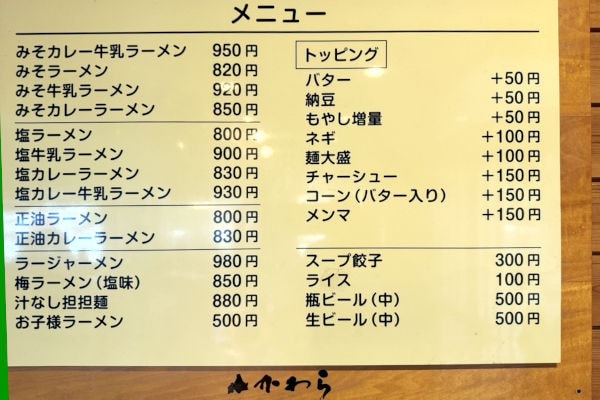 メニュー
みそカレー牛乳ラーメン 950円
みそラーメン 820円
みそ牛乳ラーメン 920円
みそカレーラーメン 850円
塩ラーメン 800円
塩牛乳ラーメン 900円
塩カレーラーメン 830円
塩カレー牛乳ラーメン 930円
正油ラーメン 800円
正油カレーラーメン 830円
ラージャーメン 980円
梅ラーメン(塩味) 850円
汁なし担担麺 880円
お子様ラーメン 500円
トッピング
バター +50円
納豆 +50円
もやし増量 +50円
ネギ +100円
麺大盛 +100円
チャーシュー +150円
コーン(バター入り) +150円
メンマ +150円
スープ餃子 300円
ライス 100円
瓶ビール(中) 500円
生ビール(中) 500円
かわら